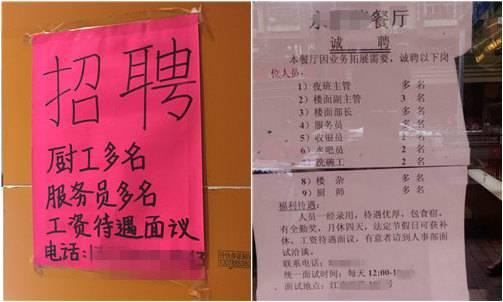 招聘
厨工多名
服务员多名
工资待遇面议
电话:1 3
永 餐厅
诚 聘
本餐厅因业务拓展需要,诚聘以下岗
位人员。
1)夜班主管 多 名
2)楼面副主管 3 名
3)楼面部长 多 名
4)服务员 多 名
5)收银员 2 名
6)水吧员 2 名
洗碗工 2 名
8)楼 杂 多 名
9)厨 师 多 名
福利待遇:
人员一经录用,待遇优厚,包食宿,
有全勤奖,月休四天,法定节假日可获补
休。工资待遇面议,有意者请到人事部面
试洽谈。
联系电话:
统一面试时间:每天 12:00-1
面试地点:江 号